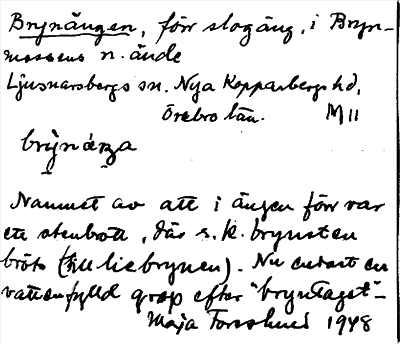 Brynängen, förr slogäng, i Bryn-
mossens n. ände
Ljusnarsbergs sn. Nya Kopparbergs hd,
Örebro län. M11
brỳnǽŋa
Namnet av att i ängen förr var
ett stenbrott, där s. k. brynsten
bröts (till liebrynen). Nu endast en
vattenfylld grop efter "bryntaget"-
Maja Forsslund 1948